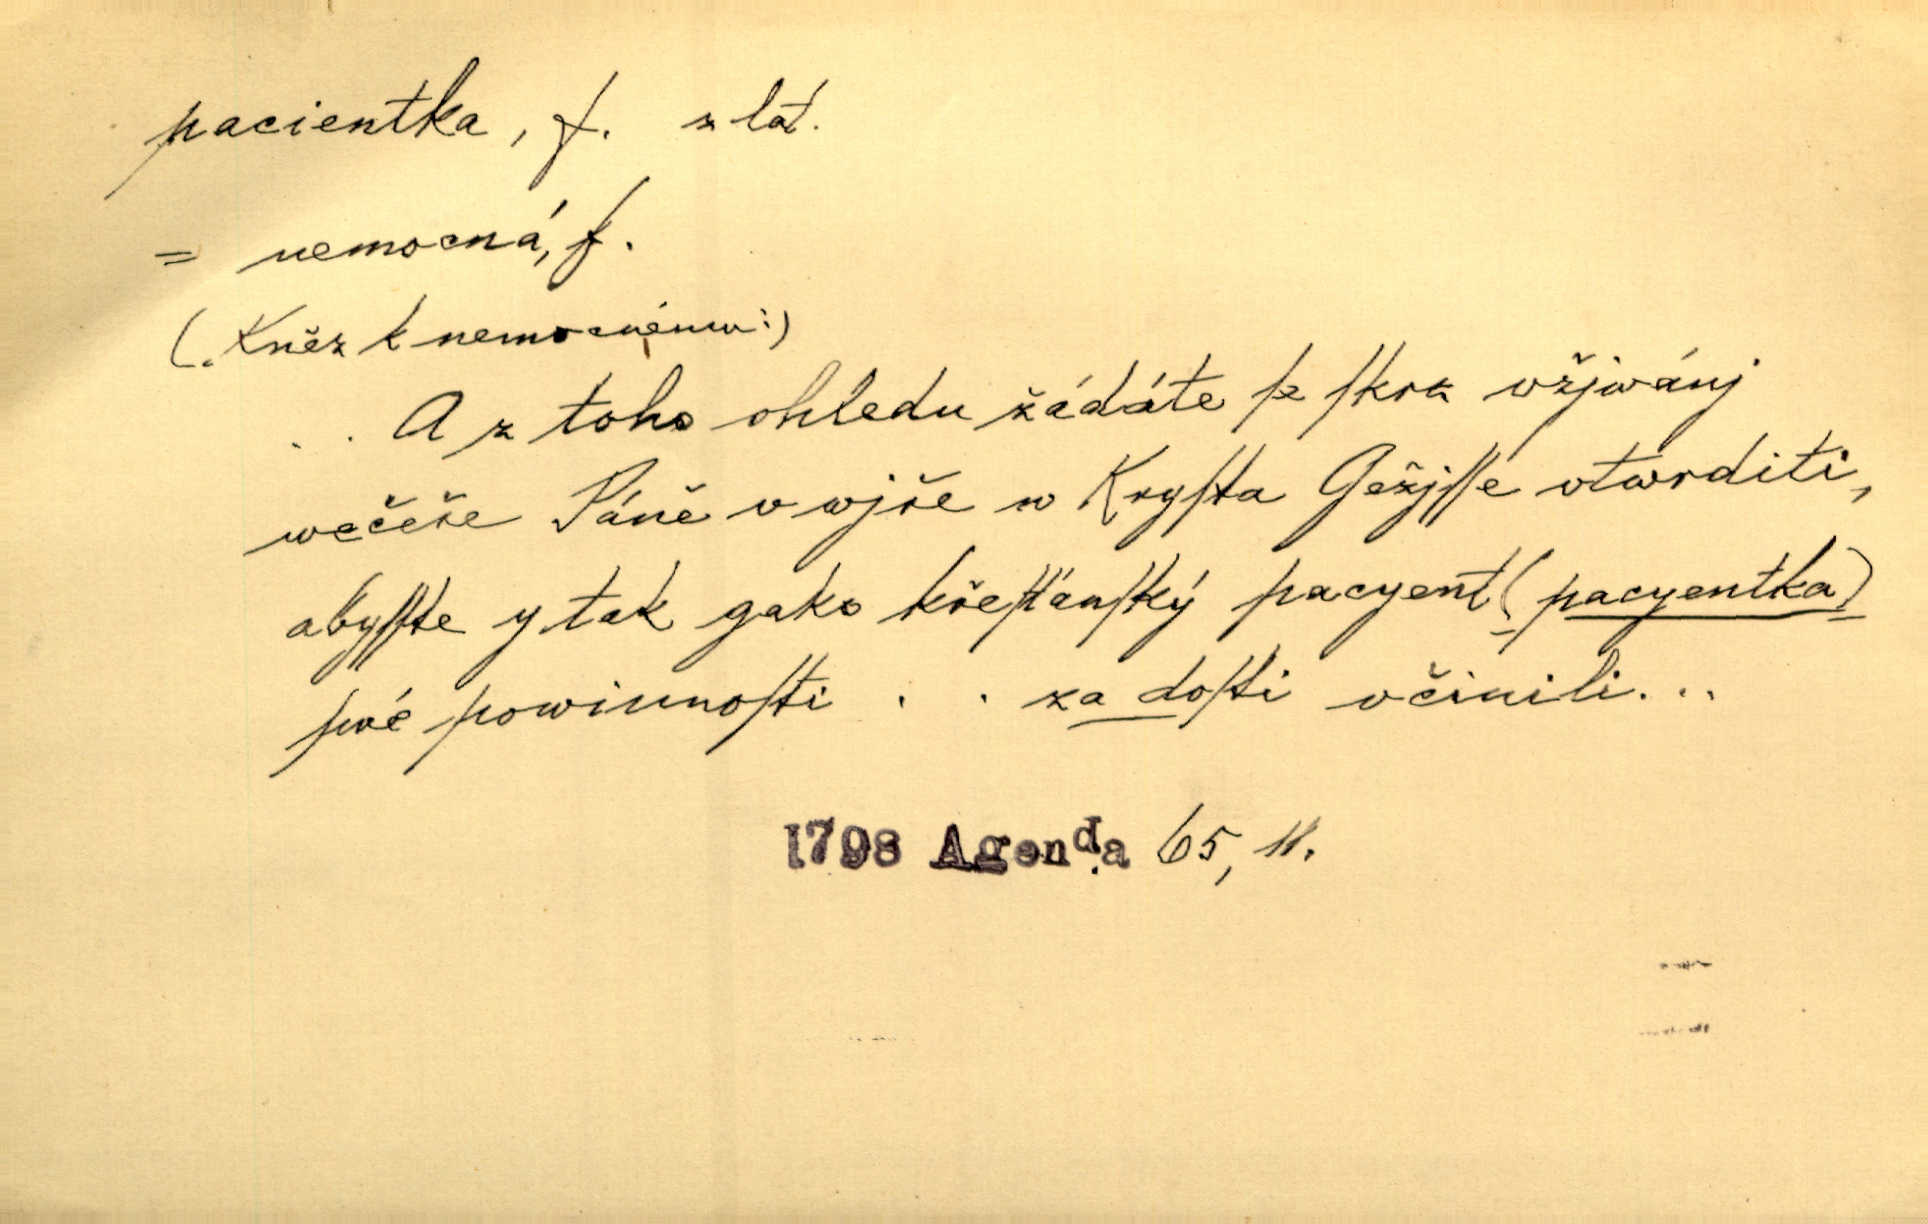 pacientka, f. z lat.
= nemocná, f.
(: Kněz k nemocnému :)
. . A z toho ohledu žádáte ſe ſkrz vžjwánj
wečeře Páně v wjře w Kryſta Gežjſſe vtwrditi,
abyſſte y tak gako křeſťanſký pacyent (pacyentka)
ſwé powinnoſti . . za doſti včinili...
1798 Agenda 65, 11.